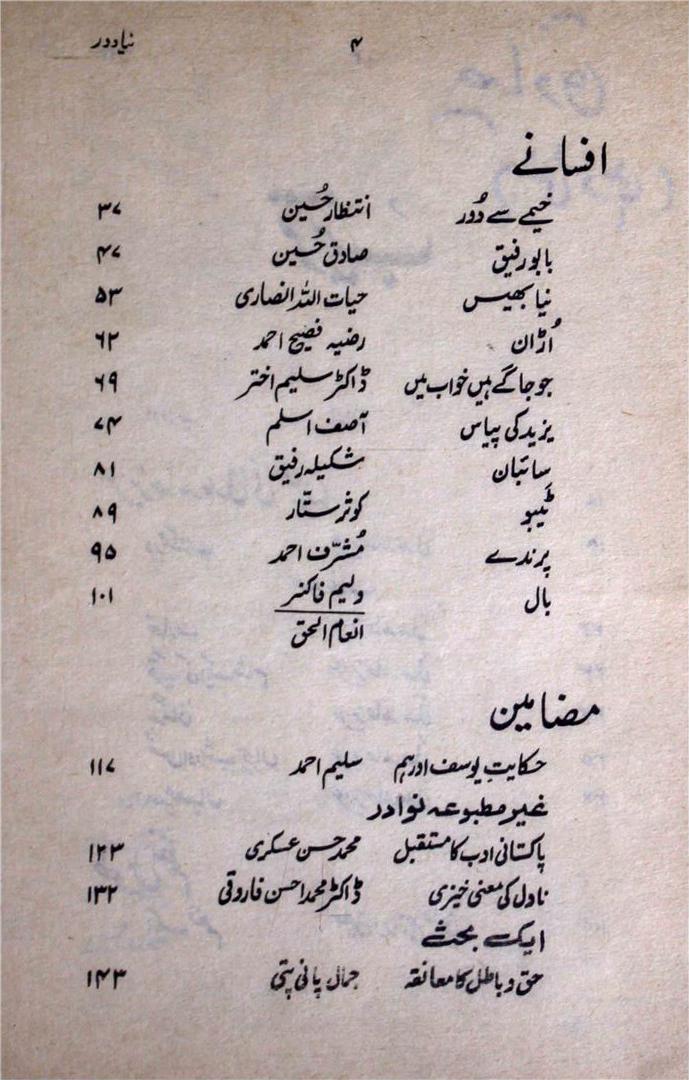 نیا دور ۴
افسانے
خیمے سے دُور انتظار حُسین ۳۷
بابو رفیق صادق حُسین ۴۷
نیا بھیس حیات اللہ انصاری ۵۳
اُڑان رضیہ فصیح احمد ۶۲
جو جاگے ہیں خواب میں ڈاکٹر سلیم اختر ۶۹
یزید کی پیاس آصف اسلم ۷۴
سائبان شکیلہ رفیق ۸۱
ٹیپو کوثر ستّار ۸۹
پرندے مُشرّف احمد ۹۵
بال ولیم فاکنر ۱۰۱
انعام الحق
مضامین
حکایتِ یوسف اور ہم سلیم احمد ۱۱۷
غیر مطبوعہ نوادر
پاکستانی ادب کا مستقبل محمد حسن عسکری ۱۲۳
ناول کی معنی خیزی ڈاکٹر محمد احسن فاروقی ۱۳۲
ایک بحث
حق و باطل کا معانقہ جمال پانی پتی ۱۴۳